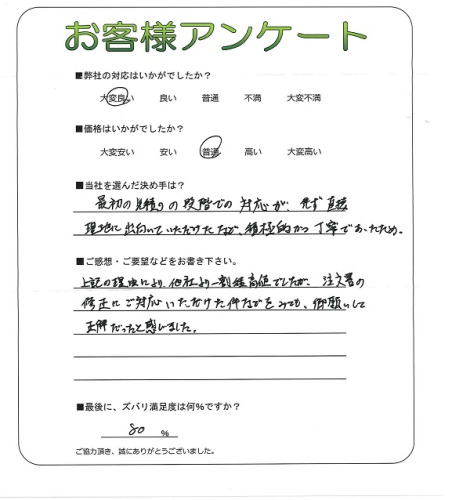 お客様アンケート
■弊社の対応はいかがでしたか？
大変良い 良い 普通 不満 大変不満
■価格はいかがでしたか？
大変安い 安い 普通 高い 大変高い
■当社を選んだ決め手は？
最初の見積りの段階での対応が、先ず直接
現地に出向いていただけた事が、積極的かつ丁寧であったため。
■ご感想・ご要望などをお書き下さい。
上記の理由により、他社より一割程高値でしたが、注文書の
修正にご対応いただけた件などをみても、御願いして
正解だったと感じました。
■最後に、ズバリ満足度は何%ですか？
80 %
ご協力頂き、誠にありがとうございました。